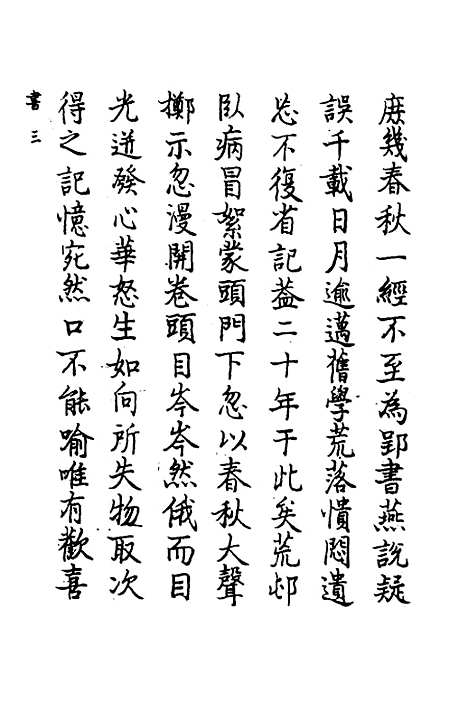 庶幾春秋一經不至為郢書燕說疑
誤千載日月逾邁舊學荒落憒悶遺
忘不復省記葢二十年于此矣荒邨
臥病冒絮蒙頭門下忽以春秋大聲
擲示忽漫開卷頭目岑岑然俄而目
光迸發心華怒生如向所失物取次
得之記憶宛然口不能喻唯有歡喜
書 三